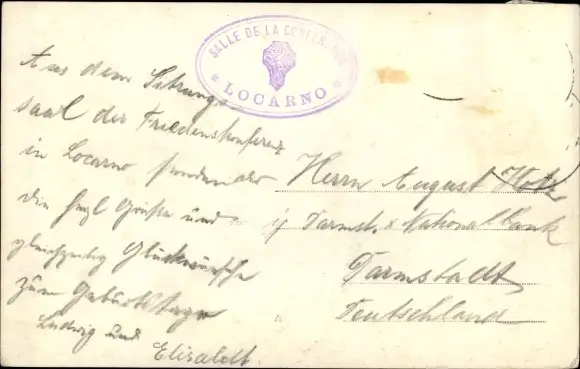 SALLE DE LA CONFERENCE
* LOCARNO *
Aus dem Sitzungs
saal der Friedenskonferenz
in Locarno senden als
die herzl Grüße und
gleichzeitig Glückwünsche
zum Geburtstage
Ludwig und
Elisabeth.
Herrn August
i/ Darmst. & National bank
Darmstadt
Deutschland